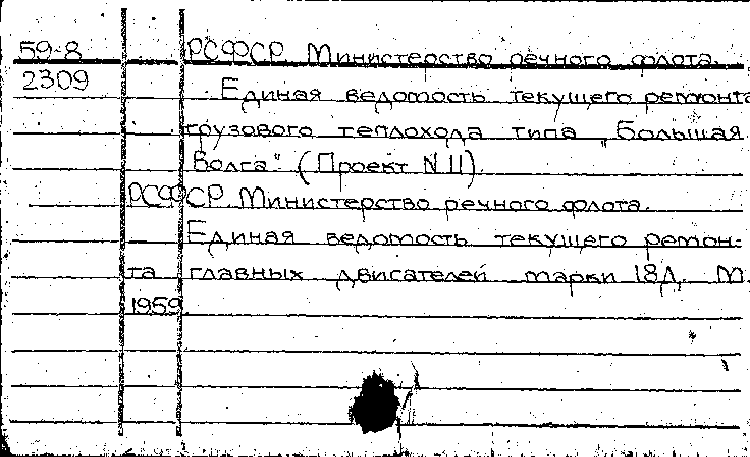 59-8 РСФСР Министерство речного флота.
2309 Единая ведомость текущего ремонта
грузового теплохода типа „Большая
Волга" (Проект N 11).
РСФСР Министерство речного флота.
Единая ведомость текущего ремон-
та главных двигателей марки 18Д. М.
1959.